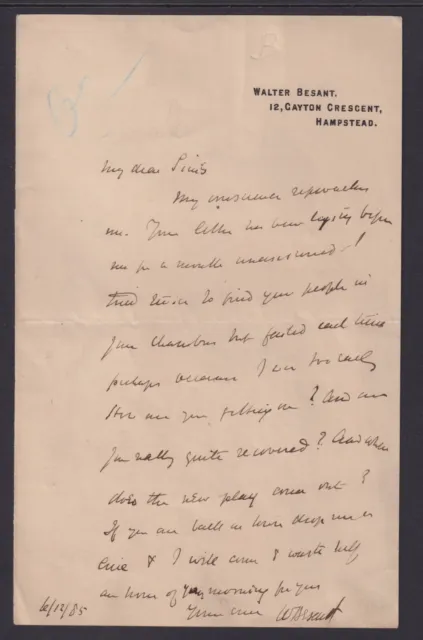 WALTER BESANT.
12, GAYTON CRESCENT,
HAMPSTEAD.
My dear Sims
My conscience reproaches
me. Your letter has been laying before
me for a month unanswered!
tried twice to find your people in
your chambers but failed each time
perhaps because I was too early
How are you getting on? And are
you really quite recovered? And when
does the new play come out?
If you are back in town drop me a
line & I will come & waste half
an hour of your morning for you
Yours ever W Besant
6/12/85